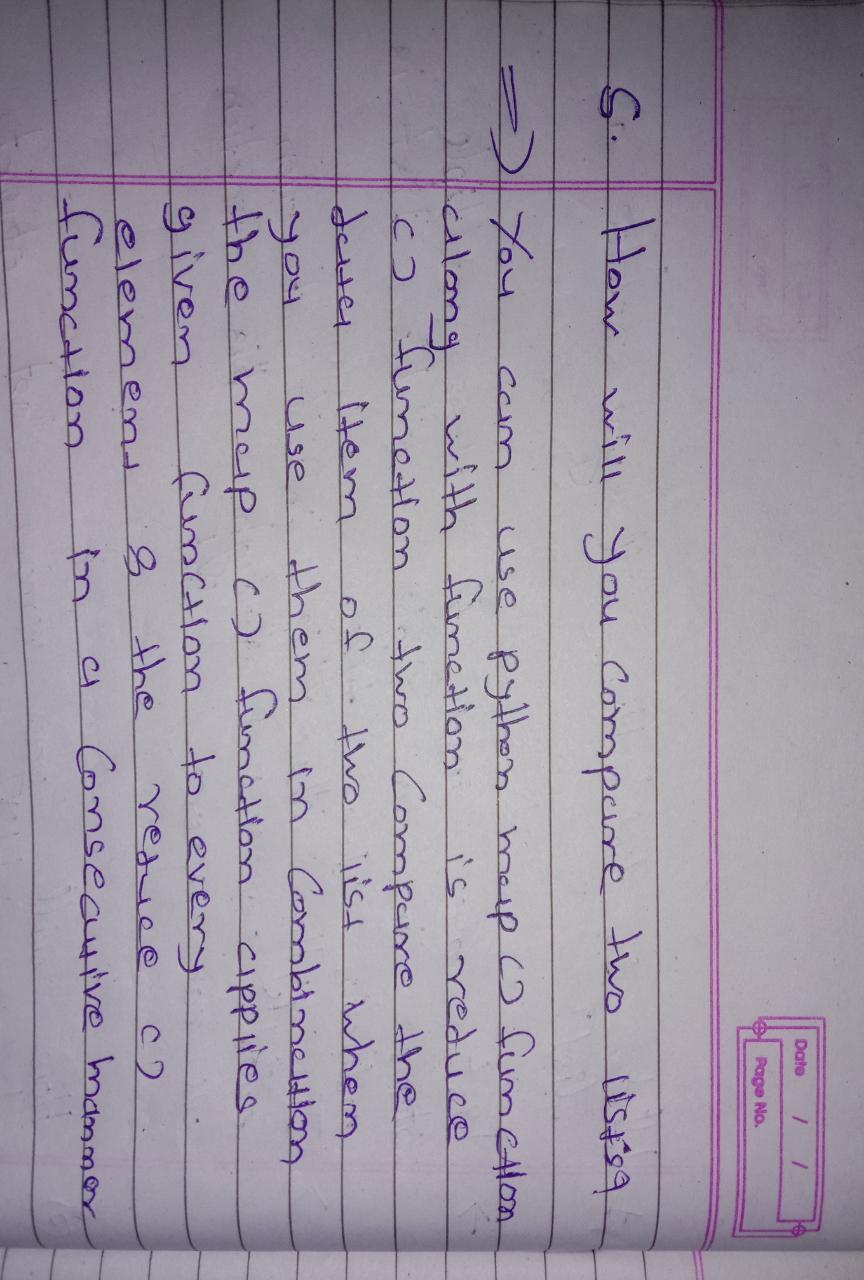 Date / /
Page No.
5. How will you compare two lists?
=> You can use python map () function
along with function is reduce
() function two compare the
data item of two list when
you use them in combination
the map () function applies
given function to every
element & the reduce ()
function in a consecutive manner